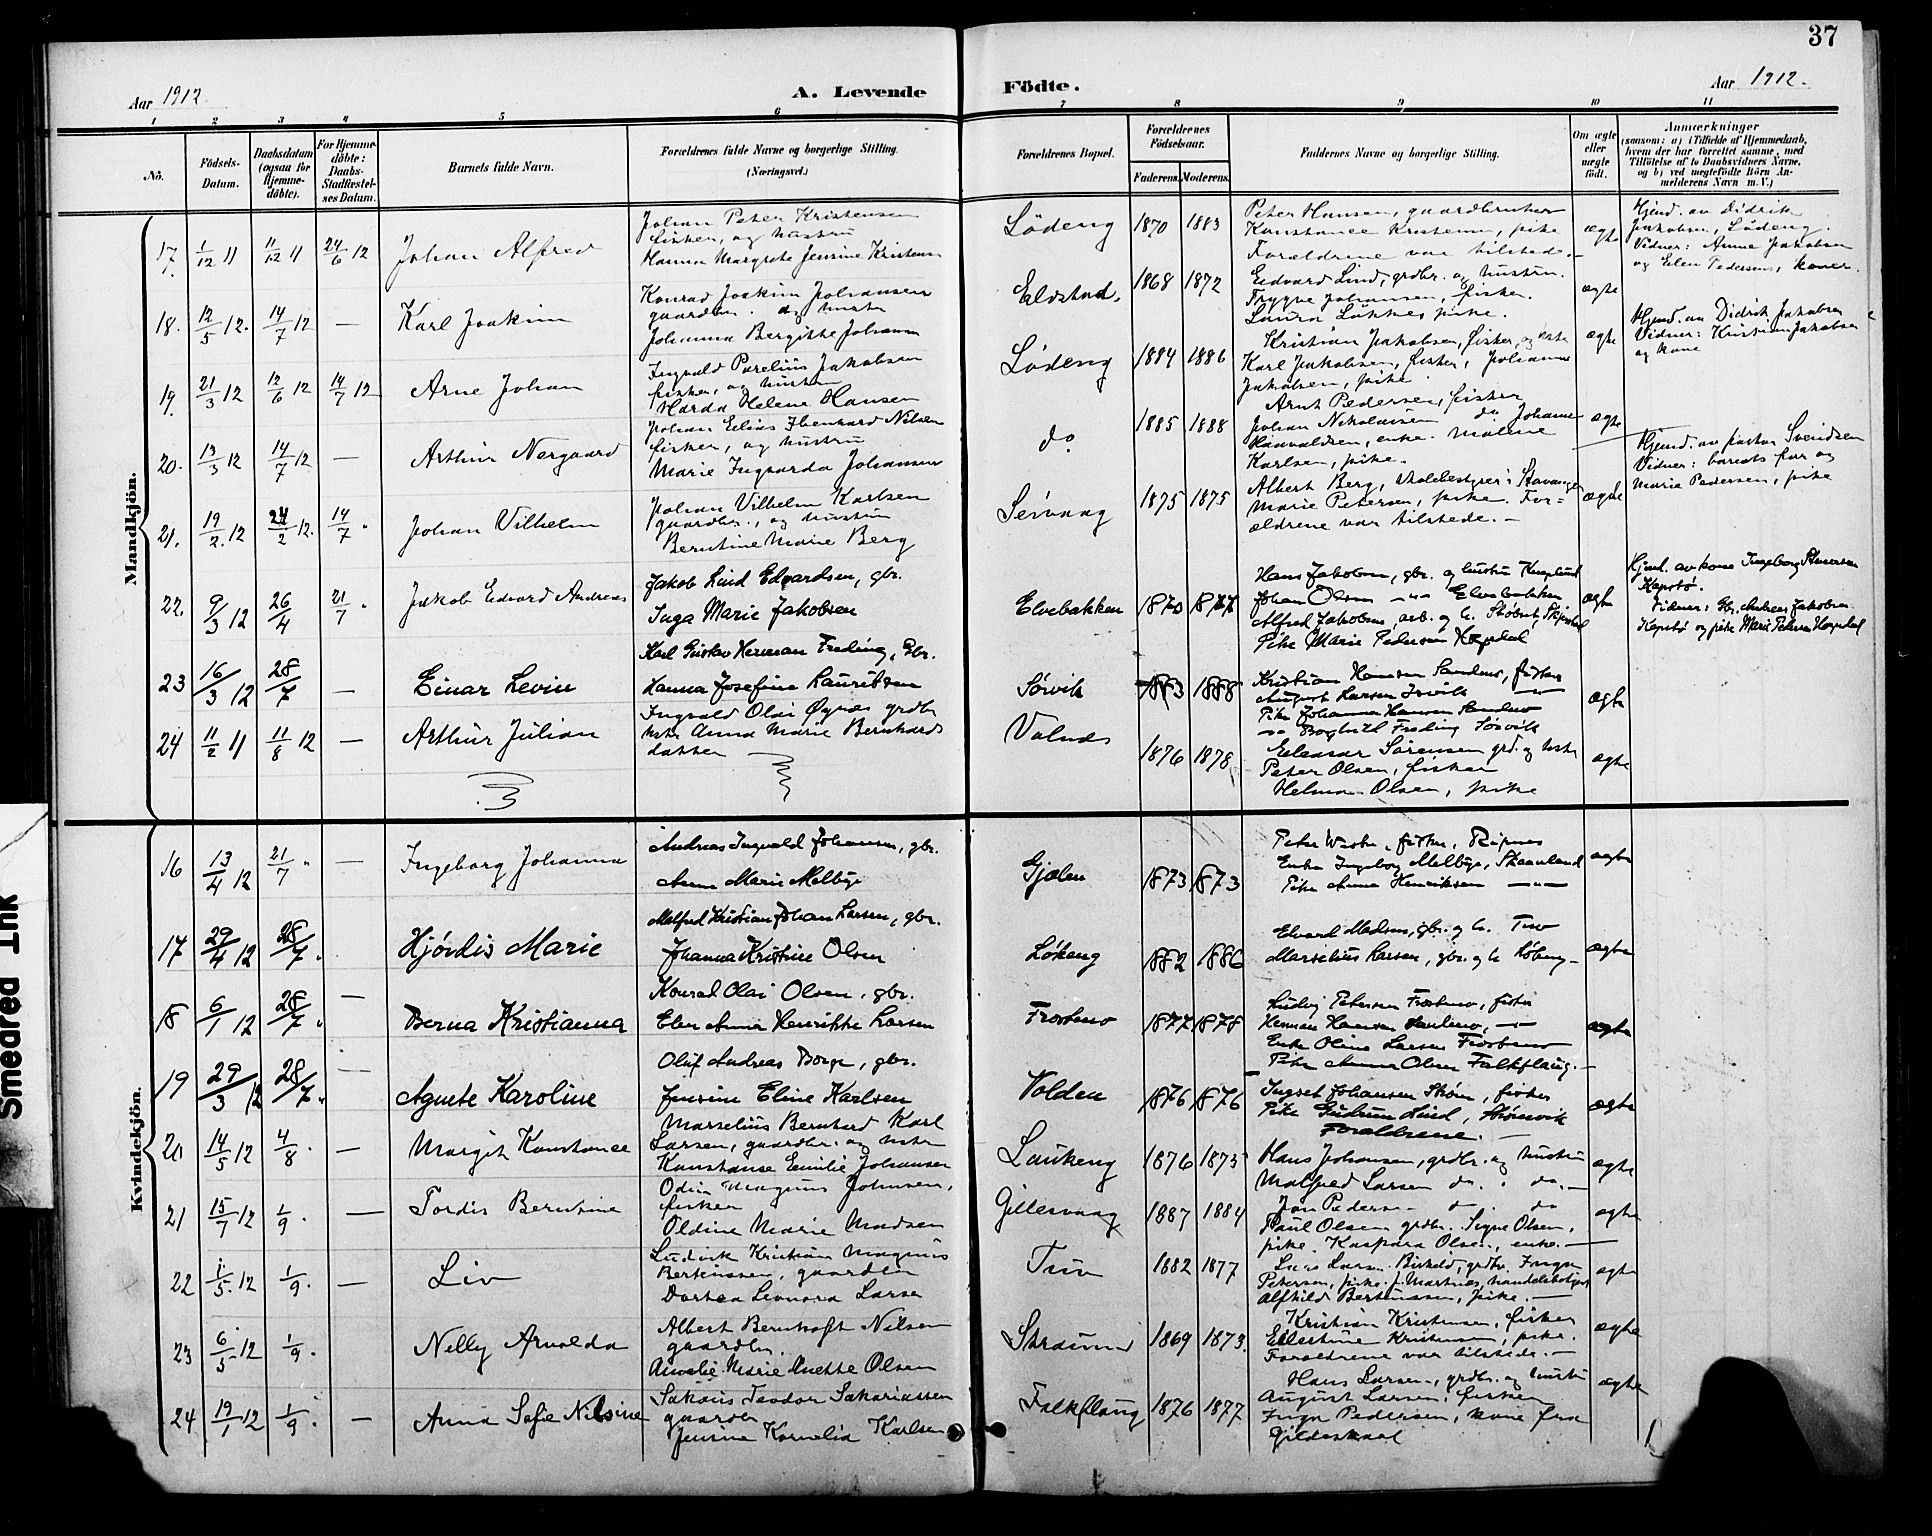 37
Aar 1912.
A. Levende
Födte.
Aar 1912.
1 2 3 4 5 6 7 8 9 10 11
No.
Födsels-Datum.
Daabsdatum (ogsaa for Hjemmedöbte).
For Hjemmedöbte: Daabs-Stadfæstelses Datum.
Barnets fulde Navn.
Forældrenes fulde Navne og borgerlige Stilling. (Næringsvei.)
Forældrenes Bopæl.
Forældrenes Födselsaar.
Faderens. Moderens.
Faddernes Navne og borgerlige Stilling.
Om ægte eller uægte födt.
Anmærkninger
(saasom: a) i Tilfælde af Hjemmedaab,
hvem der har forrettet samme, med
Tilföielse af to Daabsvidners Navne,
og b) ved uægtefödte Börn An-
melderens Navn m. V.)
Mandkjön.
17. 1/12 11 11/12 11 24/6 12 Johan Alfred
Johan Peter Kristensen
fisker, og hustru
Hanna Margrete Jensine Kristensen
Lödeng 1870 1883
Peter Hansen, gaardbruker
Konstance Kristensen, pike
Forældrene var tilstede.
ægte
Hjemd. av Didrik
Jakobsen, Lödeng.
Vidner: Anne Jakobsen
og Elen Pedersen, koner.
18. 12/5 12. 14/7 12 — Karl Joakim
Konrad Joakim Johansen
gaardbr. og hustru
Johanna Bergitte Johansen
Eldstad. 1868 1872
Edvard Lind, grdbr. og hustru.
Trygve Johansen, fisker.
Laura Løkke, pike.
ægte
19. 21/3 12 12/6 12 14/7 12 Arne Johan
Ingvald Parelius Jakobsen
fisker, og hustru
Harda Helene Hansen
Lødeng 1884 1886
Kristian Jakobsen, fisker, og hustru
Karl Jakobsen, fisker, Johanne
Jakobsen, pike
ægte
Hjemd. av Didrik Jakobsen
Vidner: Kristian Jakobsen
og kone
20. 13/3 12 14/7 12 — Arthur Nergaard
Johan Elias Ebenhard Nilsen
fisker, og hustru
Marie Ingvarda Johansen
do. 1885 1888
Arnt Pedersen, fisker
Johan Nikolaisen do Johanne
Haavaldsen, enke. Malene
Karlsen, pike.
ægte
21. 19/2 12 24/2 12. 14/7 " Johan Vilhelm
Johan Vilhelm Karlsen
gaardbr., og hustru
Berntine Marie Berg
Servaag 1875 1875
Albert Berg, skolebestyrer i Stavanger
Marie Petersen, pike. For-
ældrene var tilstede. —
ægte
Hjemd. av pastor Svendsen
Vidner: barnets far og
Marie Pedersen, pike
22. 9/3 12 26/4 21/7 " Jakob Edvard Andreas
Jakob Lind Edvardsen, gbr.
Inga Marie Jakobsen
Elvebakken 1870 1877
Hans Jakobsen, gbr. og hustru
Johan Olsen —"— Elvebakken
Alfred Jakobsen, arb. og h.
Pike Marie Pedersen Hopdal
ægte
Hjemd. av kone Ingeborg
Kapstø.
Vidner: Gbr. Andreas Jakobsen
Kapstø og pike Marie Pedersen Hopdal
23 16/3 12 28/7 — Einar Levin
Karl Gustav Herman Freding, Gbr.
Hanna Josefine Lauritsen
Sørvik 1883 1888
Kristian Hansen Sandmo, fisker
August Larsen —"—
Pike Johanna Hansen Sandmo
—"— Freding Sørvik
ægte
24 11/2 11 11/8 12 — Arthur Julian
Ingvald Olai Øynes grdbr
hstr. Anna Marie Bernhards
datter
Valnes 1876 1878
Eleasar Sørensen grd. og hustr
Peter Olsen, fisker
Helma Olsen, pike
ægte
Kvindekjön.
16 13/4 12 21/7 " — Ingeborg Johanna
Andreas Ingvald Johansen, gbr.
Anna Marie Melbye
Gjølen 1873 1873
Enke Ingeborg Melbye, Skaanland
Pike Anna Henriksen —"—
ægte
17 29/4 12 28/7 . Hjördis Marie
Malfred Kristian Johan Larsen, gbr.
Johanna Kristine Olsen
Løkeng 1882 1886
Edvard Madsen, gbr. og h. Tuv
Marselius Larsen, gbr. og h. Løkeng —
ægte
18 6/1 12 28/7 " — Berna Kristianna
Konrad Olai Olsen, gbr.
Elen Anna Henrikke Larsen
Frostmo 1877 1878
Ludvig Petersen Frostmo, fisker
Herman Hansen Sandmo, —"—
Enke Oline Larsen Frostmo
Pike Anna Olsen Falkflaug. —
ægte
19 29/3 12 28/7 " — Agnete Karoline
Oluf Andreas Borge, gbr.
Jensine Eline Karlsen
Volden 1876 1876
Ingvart Johansen Strøm, fisker
Pike Gudrun Lind, Strømsvik
Forældrene. —
ægte
20 14/5 12 4/8 . — Margit Konstance
Marselius Bernhard Karl
Larsen, gaardbr. og hstr
Konstanse Emilie Johansen
Laukeng 1876 1875
Hans Johansen, grdbr. og hustru
Malfred Larsen do. . do. —
ægte
21 15/7 12 1/9 . — Tordis Berntine
Odin Magnus Johnsen,
fisker
Oldine Marie Madsen
Gillesvaag 1887 1884
Jon Pedersen do. do
Paul Olsen grdbr. Signe Olsen,
pike. Kaspara Olsen, enke. —
ægte
22 1/5 12 1/9 . — Liv
Ludvik Kristian Magnus
Berteussen, gaardbr
Dortea Leonora Larsen
Tuv 1882 1877
Lars Larsen Birkeld, grdbr. Inga
Petersen, pike. J. Martnes, handelsbetjent
Alfhild Berteussen, pike. —
ægte
23 6/5 12 1/9 . — Nelly Arnolda
Albert Bernhoft Nilsen
gaardbr.
Amalie Marie Anette Olsen
Straumen 1869 1873.
Kristian Kristensen, fisker
Ellertine Kristensen, pike.
Forældrene var tilstede. —
ægte
24 19/1 12 1/9 . — Anna Sofie Nilsine
Sakæus Teodor Sakariassen
gaardbr
Jensine Kornelia Karlsen
Falkflaug 1876 1877
Hans Larsen, grdbr. og hustru
August Larsen, fisker
Inga Pedersen, kone fra
Gildeskaal
ægte
Smeared Ink